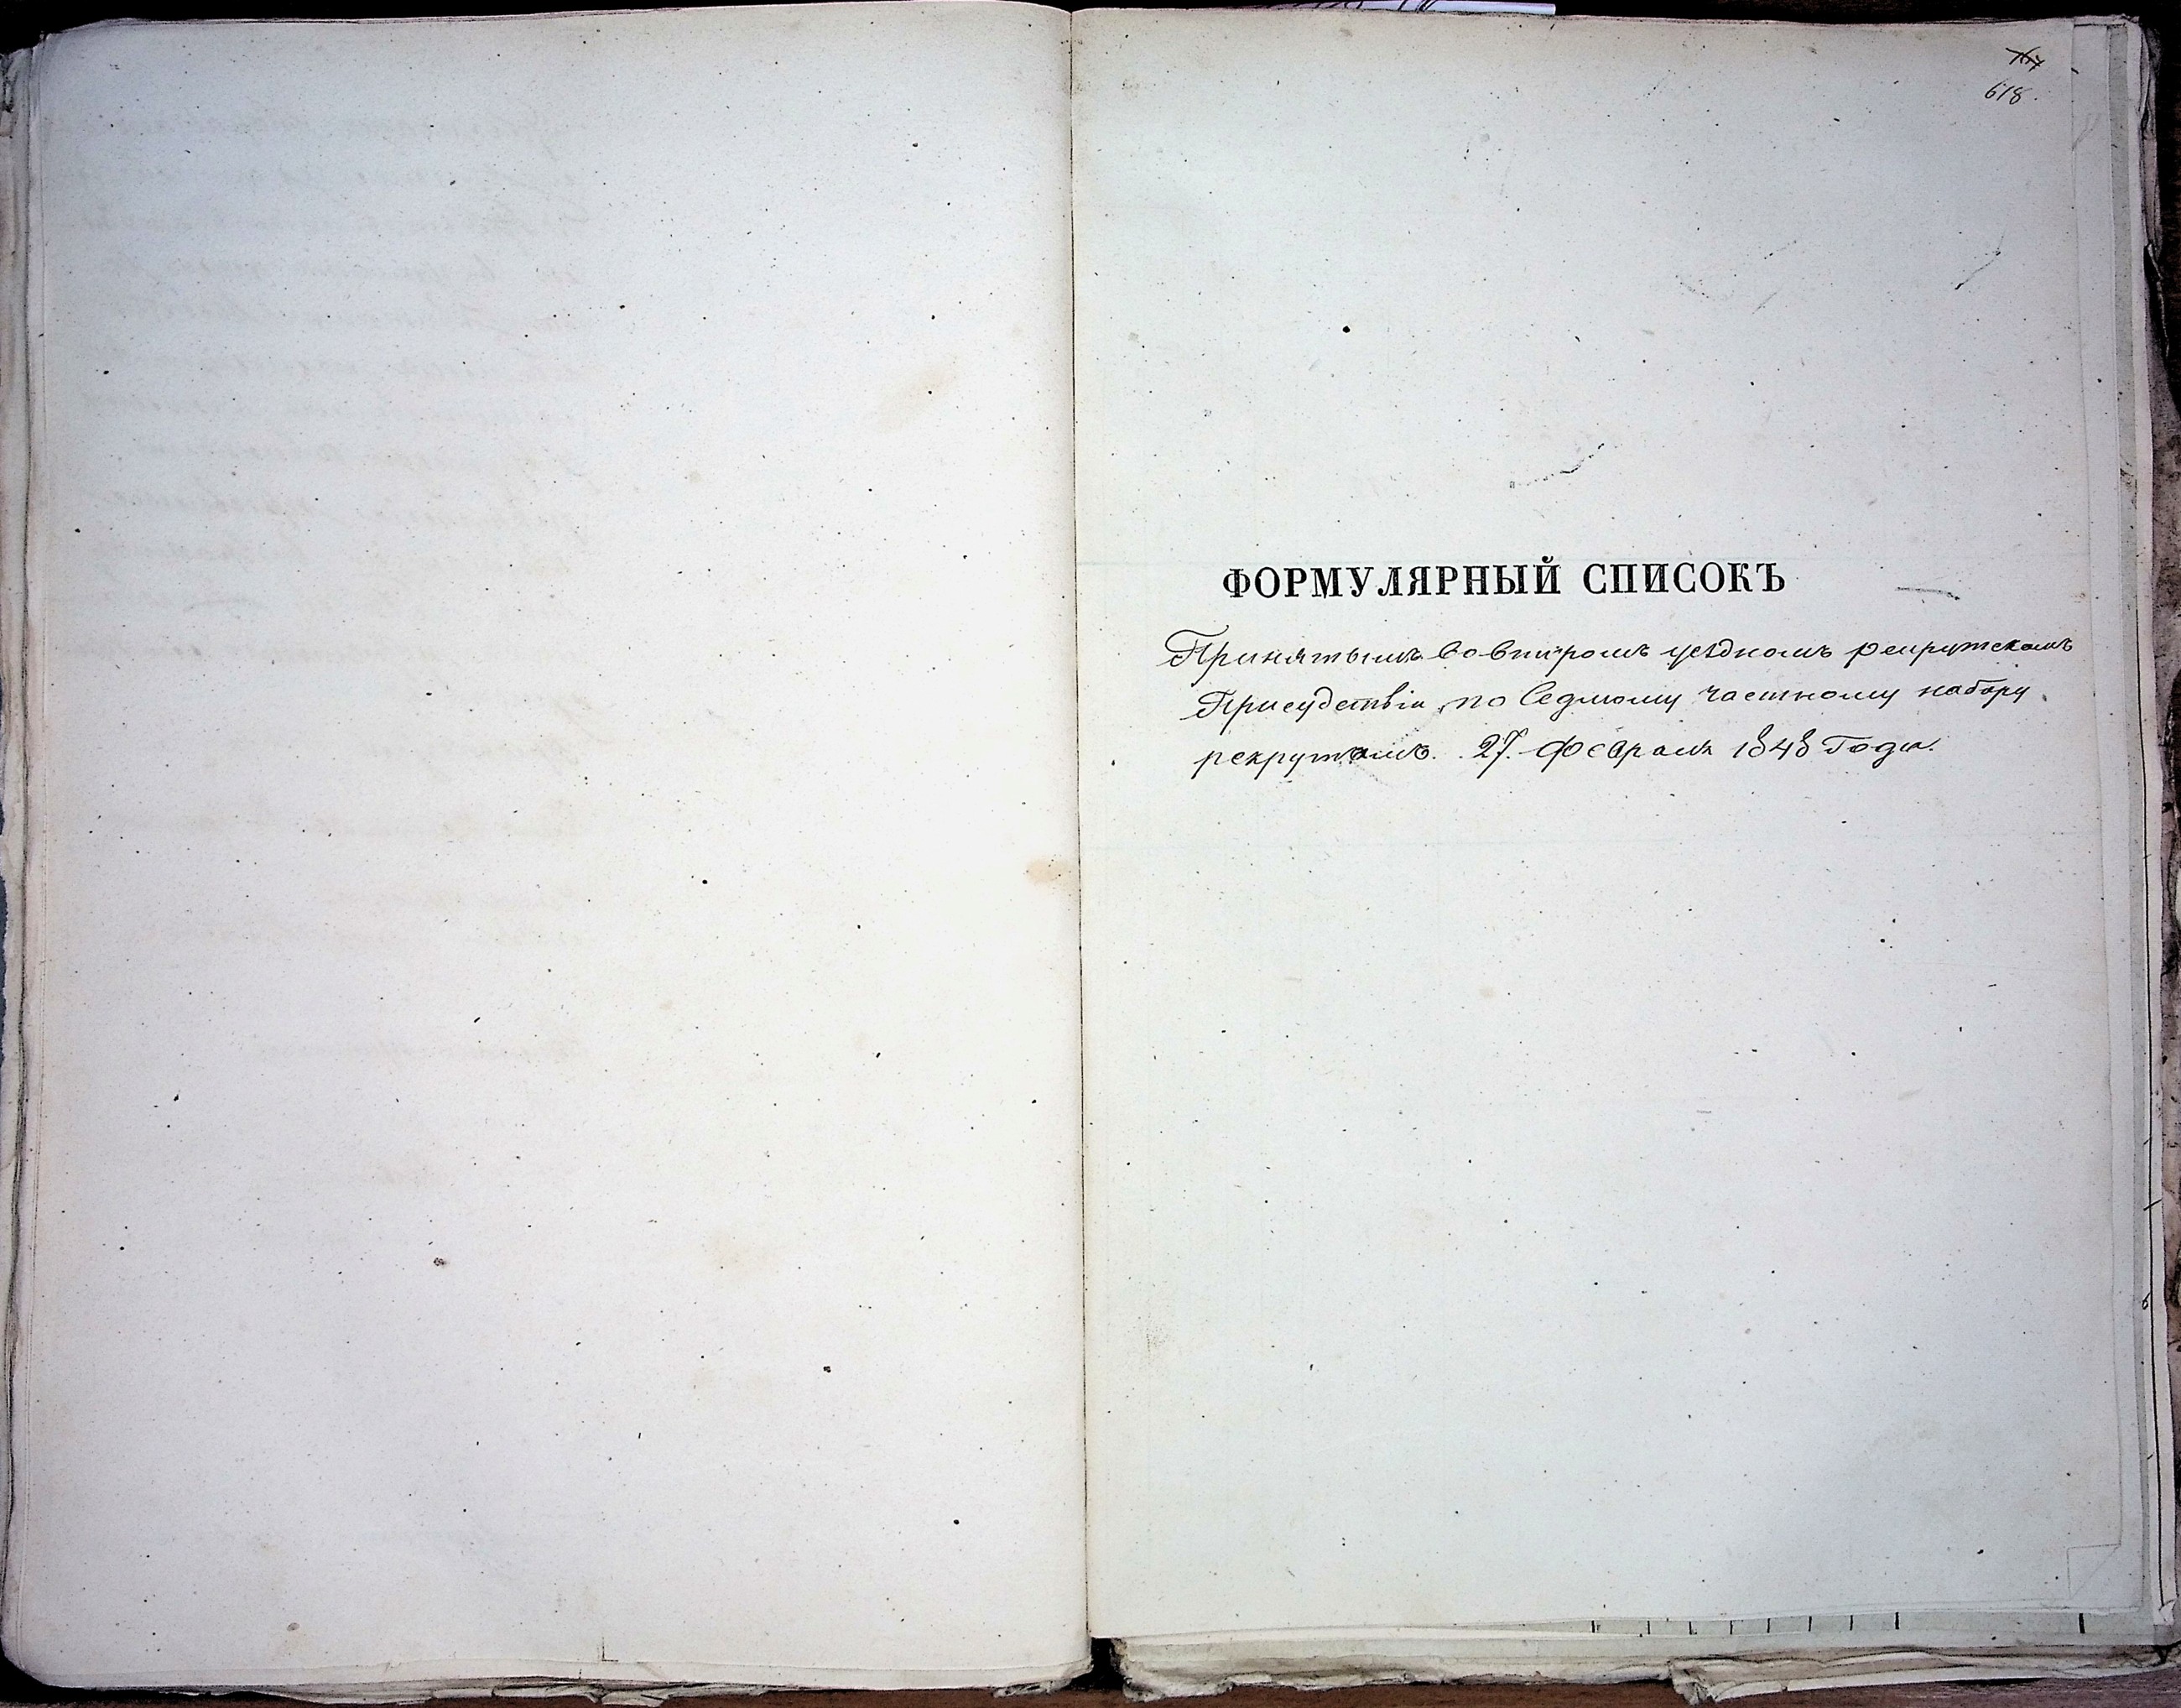 618.
ФОРМУЛЯРНЫЙ СПИСОКЪ
Принятымъ во второмъ уѣздномъ рекрутскомъ
Присудствіи, по Седмому частному набору
рекрутамъ. 27. Февраля 1848 Года.